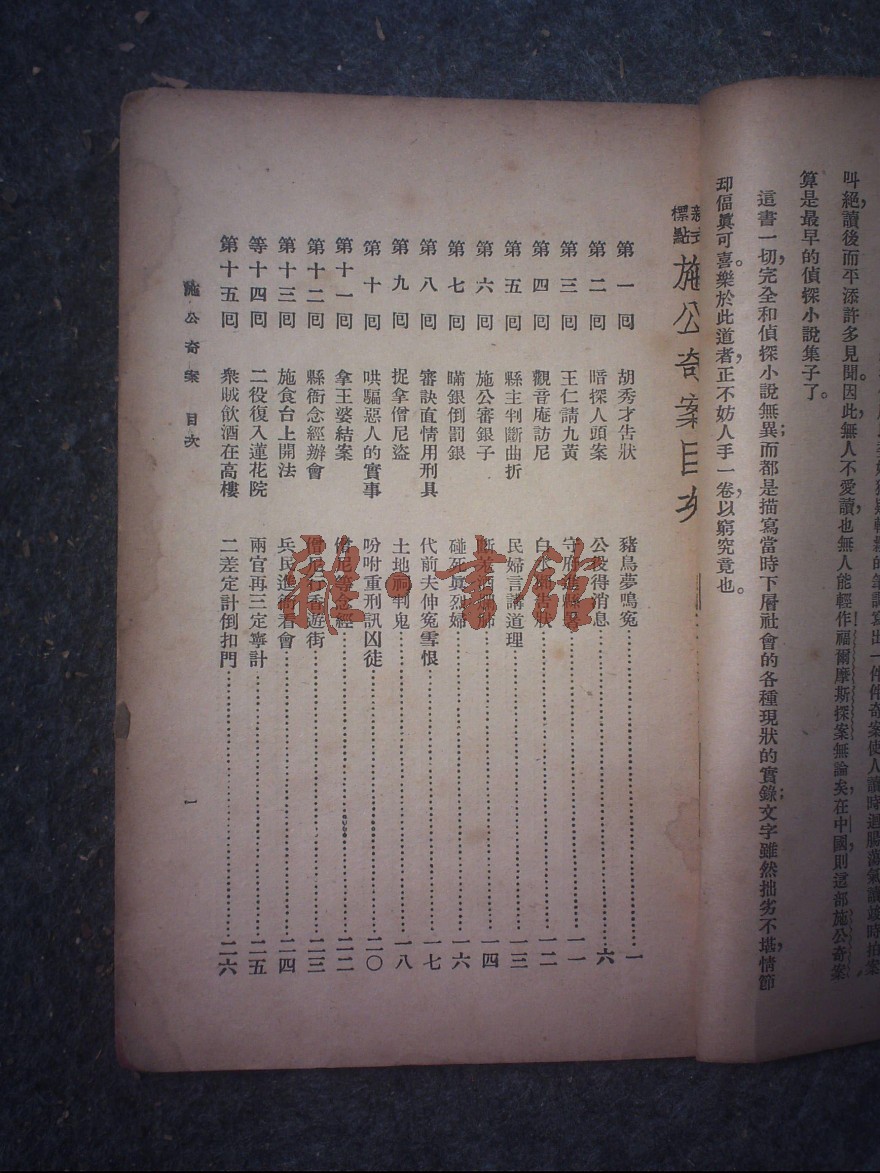 叫絕讀後而平添許多見聞因此無人不愛讀也無人能輕作福爾摩斯探案無論矣在中國則這部施公奇案
算是最早的偵探小說集子了。
這書一切完全和偵探小說無異;而都是描寫當時下層社會的各種現狀的實錄;文字雖然拙劣不堪,情節
却偪眞可喜。樂於此道者,正不妨人手一卷,以窮究竟也。
新式標點 施公奇案目次
第一回 胡秀才告狀 豬鳥夢鳴寃 一
第二回 暗探人頭案 公役得消息 六
第三回 王仁請九黃 守府進縣署 一一
第四回 觀音庵訪尼 白水獺告狀 一二
第五回 縣主判斷曲折 民婦言講道理 一三
第六回 施公審銀子 斷酒 一四
第七回 瞞銀倒罰銀 碰死眞烈婦 一六
第八回 審訣直情用刑具 代前夫伸寃雪恨 一七
第九回 捉拿僧尼盜 土地祠判鬼 一八
第十回 哄騙惡人的實事 吩咐重刑訊凶徒 二〇
第十一回 拿王婆結案 僧尼等念經 二二
第十二回 縣衙念經辦會 僧尼行香遊街 二三
第十三回 施食台上開法 兵民進衙看會 二四
等十四回 二役復入蓮花院 兩官再三定寧計 二五
第十五回 衆賊飲酒在高樓 二差定計倒扣門 二六
施公奇案 目次
一
雜·書館